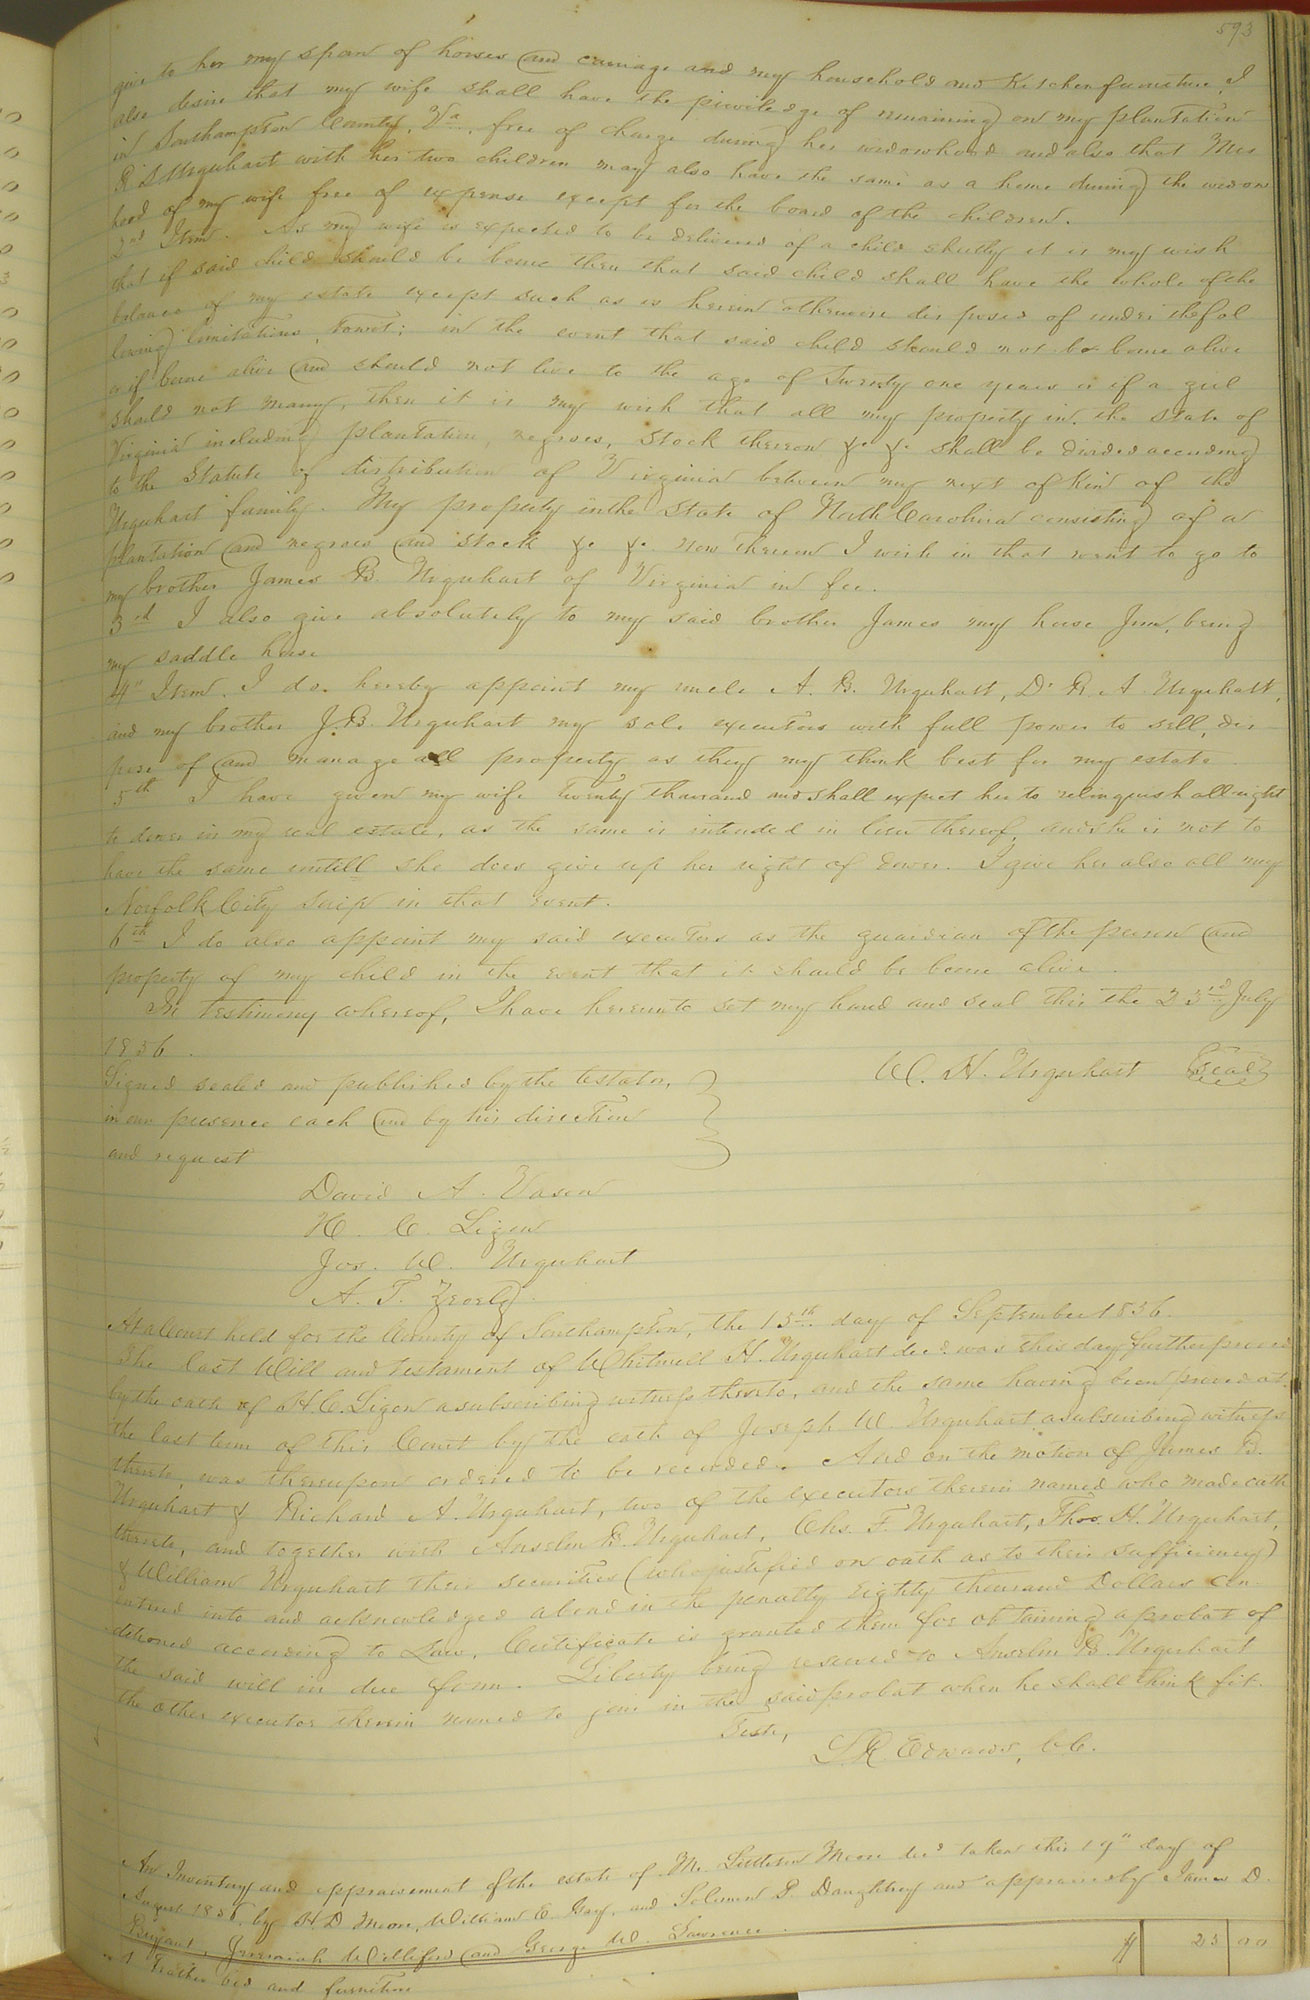 593
give to her my span of horses and carriage and my household and Kitchen furniture, I
also desire that my wife shall have the priviledge of remaining on my plantation
in Southampton County, Va., free of charge during her widowhood and also that Mrs
Urquhart with her two children may also have the same as a home during the widow
hood of my wife free of expense except for the board of the children.
2nd Item. As my wife is expected to be delivered of a child shortly it is my wish
that if said child should be borne then that said child shall have the whole of the
balance of my estate except such as is herein otherwise disposed of under the fol
lowing limitations, Towit; in the event that said child should not be borne alive
or if borne alive and should not live to the age of Twenty one years or if a girl
should not marry, then it is my wish that all my property in the State of
Virginia including plantation, negroes, stock thereon &c &c shall be divided according
to the Statute of distribution of Virginia between my next of Kin of the
Urquhart family. My property in the State of North Carolina consisting of a
plantation and negroes and stock &c &c now thereon I wish in that event to go to
my brother James B. Urquhart of Virginia in fee.
3rd I also give absolutely to my said brother James my horse Jim, being
my saddle horse
4" Item. I do hereby appoint my uncle A. B. Urquhart, Dr R. A. Urquhart,
and my brother J. B. Urquhart my sole executors with full power to sell, dis
pose of and manage all property as they my think best for my estate
5th I have given my wife Twenty thousand and shall expect her to relinquish all right
to dower in my real estate, as the same is intended in lieu thereof, and she is not to
have the same untill she does give up her right of dower. I give her also all my
Norfolk City Scrip in that event.
6th I do also appoint my said executors as the guardian of the person and
property of my child in the event that it should be borne alive.
In testimony whereof, I have hereunto set my hand and seal this the 23rd July
1856.
W. H. Urquhart Seal
Signed sealed and published by the testator,
in our presence each and by his direction
and request
David A.
H. C. Ligon
Jos. W. Urquhart
A. T.
At a Court held for the County of Southampton, the 15th day of September 1856.
The last Will and testament of Whitwell H. Urquhart decd. was this day further proved
by the oath of H. C. Ligon a subscribing witness thereto, and the same having been proved at
the last term of this Court by the oath of Joseph W. Urquhart a subscribing witness
thereto, was thereupon ordered to be recorded. And on the motion of James B.
Urquhart & Richard A. Urquhart, two of the executors therein named who made oath
thereto, and together with Anselm B. Urquhart, Chs. F. Urquhart, Thos. H. Urquhart,
& William Urquhart their securities (who justified on oath as to their sufficiency)
entered into and acknowledged a bond in the penalty Eighty thousand Dollars con
ditioned according to Law, Certificate is granted them for obtaining a probat of
the said will in due form. Liberty being reserved to Anselm B. Urquhart
the other executor therein named to join in the said probat when he shall think fit.
Teste,
L. R. Edwards, C.C.
An Inventory and appraisement of the estate of Mr. Littleton Moore decd taken this 19" day of
August 1856, by H D Moore, William E. Gay, and Solomon P. Daughtrey and appraised by James D.
Bryant, Jeremiah Williford and George W. Lawrence.
1 Feather bed and furniture $ 25 00